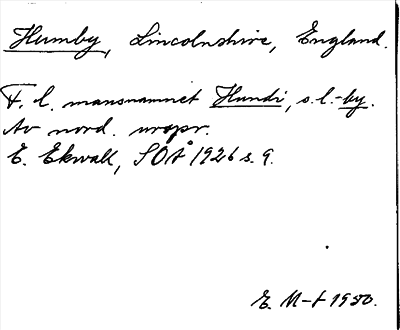 Humby, Lincolnshire, England.
F. l. mansnamnet Hundi, s. l. -by.
Av nord. urspr.
E. Ekwall, SOÅ 1926 s. 9.
E. M-t 1950.